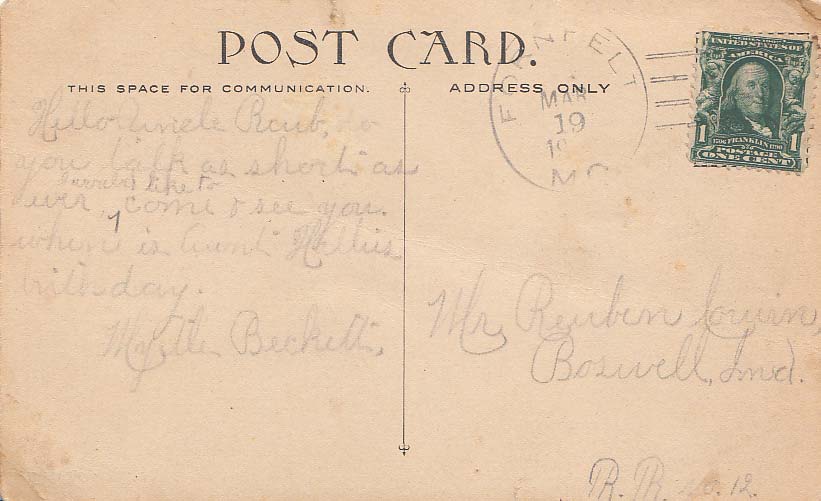 POST CARD.
THIS SPACE FOR COMMUNICATION.
ADDRESS ONLY
FORNFELT
MAR
19
MO
UNITED STATES OF
AMERICA
1706 FRANKLIN 1790
POSTAGE
1 ONE CENT 1
Hello Uncle Reub, do
you talk as short as
I would like to
ever, come & see you.
when is Aunt
day.
Myrtle Beckett,
Mr. Reuben
Boswell, Ind.
R. R. no. 12.